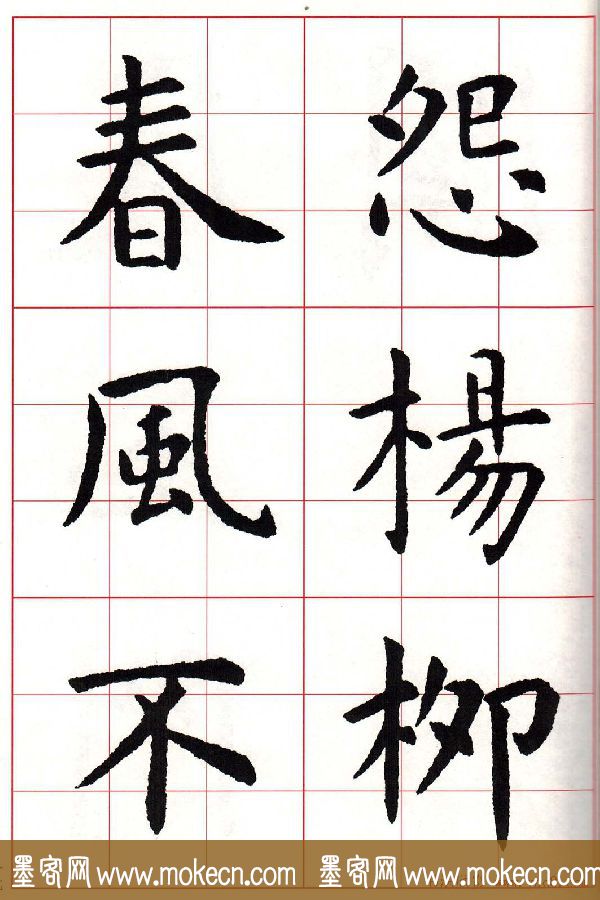 怨楊柳
春風不
墨客网 www.mokecn.com 墨客网 www.mokecn.com